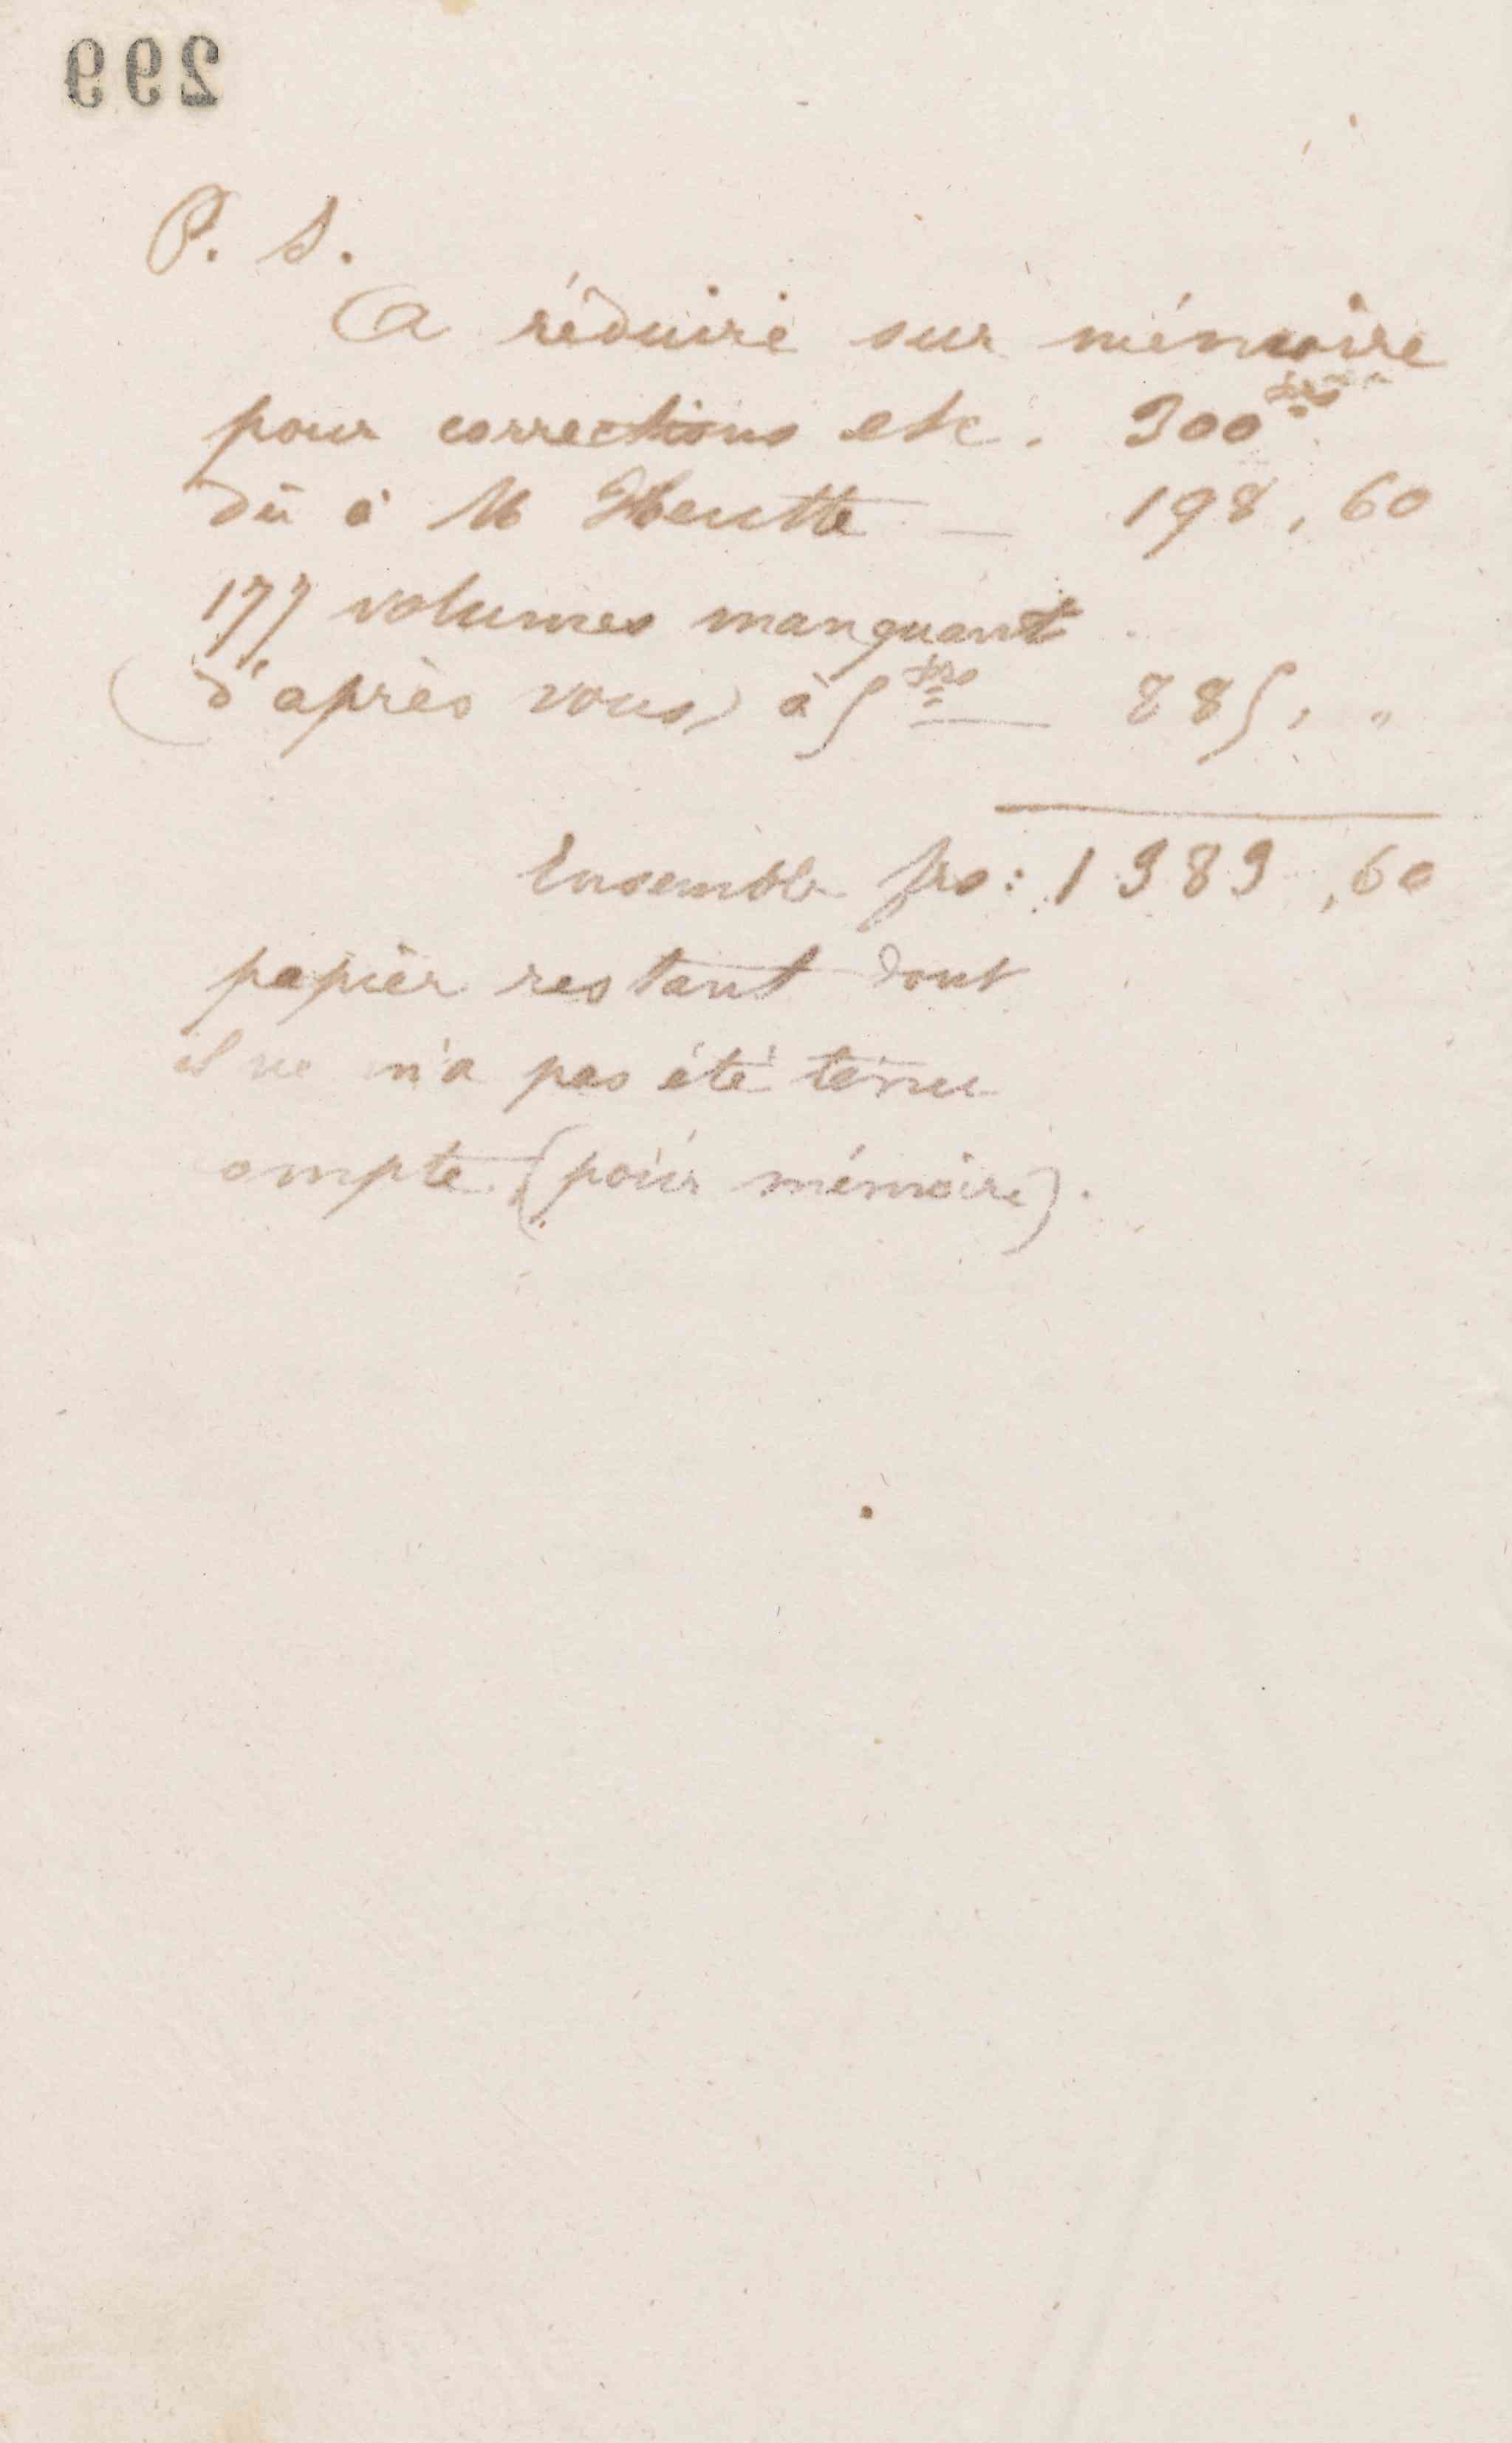 299
P. S.
A réduire sur mémoire
pour corrections etc. 300 frs
dû à M Heutte — 198,60
177 volumes manquant
(d'après vous) à 5 frs — 885, "
Ensemble frs: 1383,60
papier restant dont
il ne m'a pas été tenu
ompte (pour mémoire).